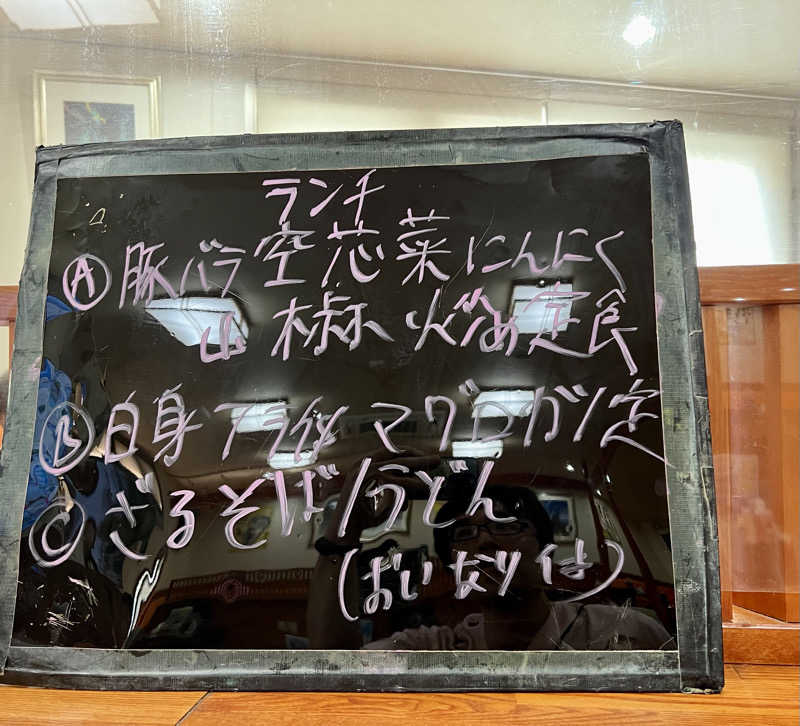 ランチ
Ⓐ豚バラ空芯菜にんにく
山椒炒め定食
Ⓑ白身フライ付 マグロガハ定
Ⓒざるそば/うどん
(おいなり付)